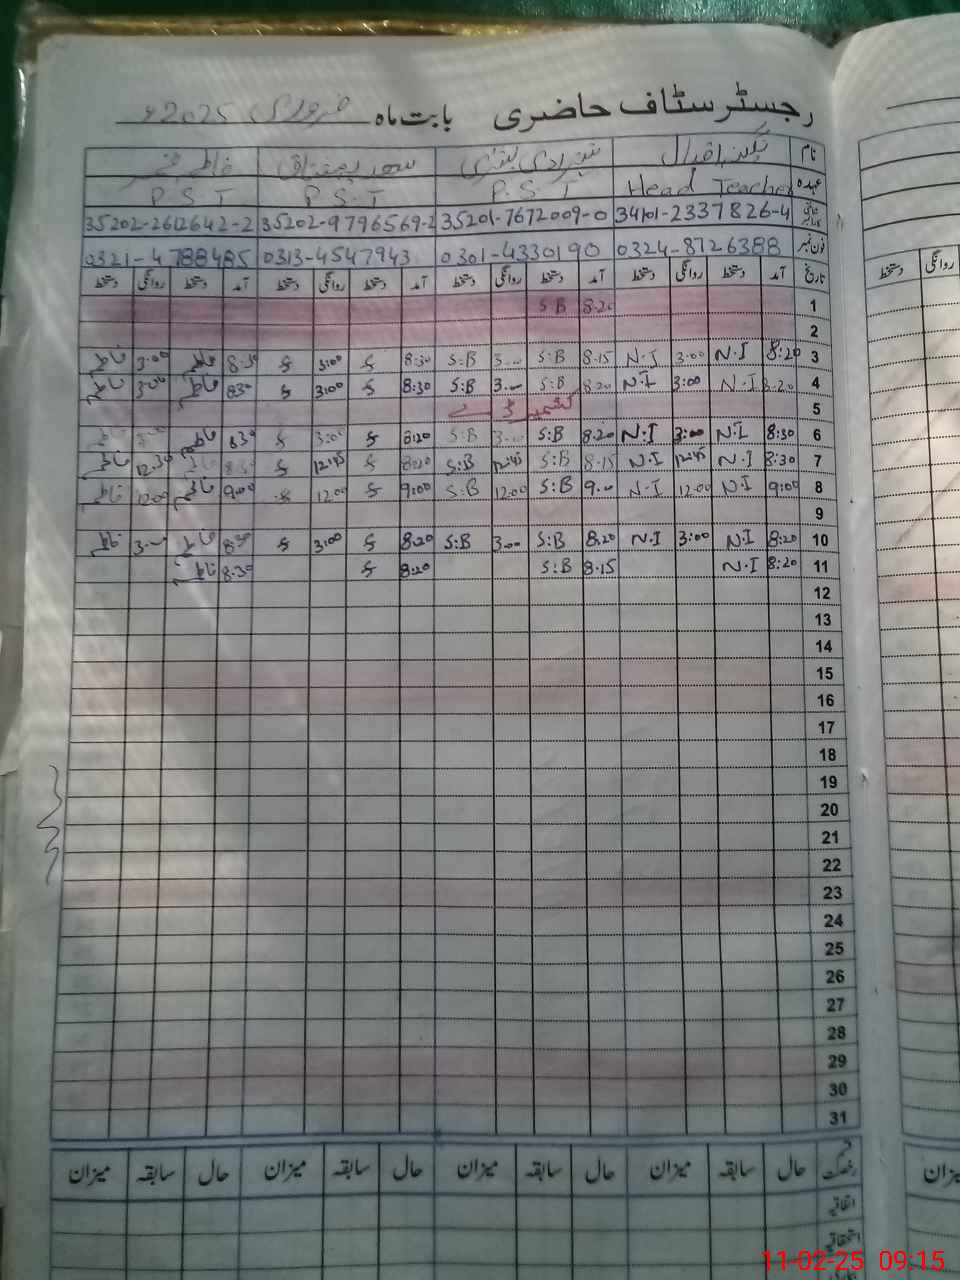 رجسٹر سٹاف حاضری بابت ماہ فروری 2025ء
نام
عہدہ Head Teacher P.S.T P.S.T P.S.T
34101-2337826-4 35201-7672009-0 35202-9796569-2 35202-2612642-2
فون نمبر 0324-8726388 0301-4330190 0313-4547943 0321-4788485
تاریخ آمد دستخط روانگی دستخط آمد دستخط روانگی دستخط آمد دستخط روانگی دستخط آمد دستخط روانگی دستخط
1 8.20 S.B
2
3 8:20 N.I 3:00 N.I 8.15 S:B 3.00 S:B 8:30 3:00 8.30 3:00
4 8.20 N.I 3:00 N.I 8.20 S:B 3.00 S:B 8:30 3:00 8:30 3:00
5 کشمیر ڈے
6 8:30 N.I 3:00 N.I 8.20 S:B 3.00 S:B 8:20 3:00 8.30
7 8:30 N.I 12:45 N.I 8.15 S:B 12:45 S:B 8:20 12:45 8.30 12:30
8 9:00 N.I 12:00 N.I 9.00 S:B 12:00 S:B 9:00 12:00 9:00 12:00
9
10 8:20 N.I 3:00 N.I 8.20 S:B 3.00 S:B 8:20 3:00 8:30 3:00
11 8:20 N.I 8.15 S:B 8:20 8:30
12
13
14
15
16
17
18
19
20
21
22
23
24
25
26
27
28
29
30
31
حال سابقہ میزان حال سابقہ میزان حال سابقہ میزان حال سابقہ میزان
اتفاقیہ
استحقاقیہ
روانگی دستخط
میزان
11-02-25 09:15